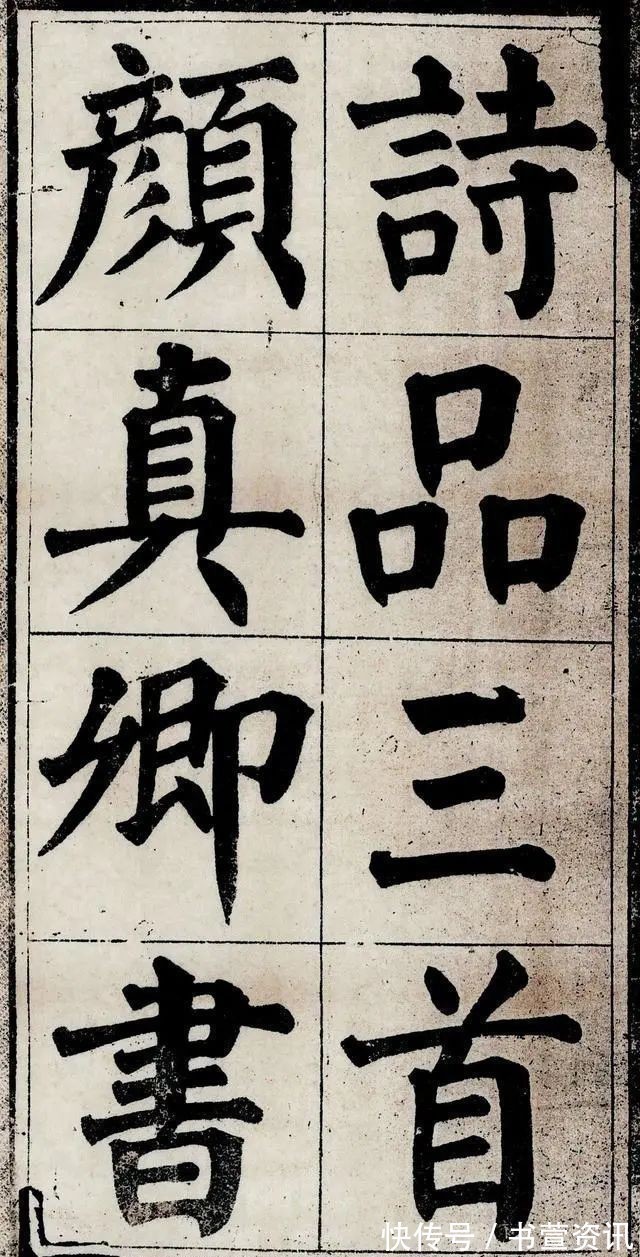 詩品三首
顏真卿書
快传号/书萱资讯